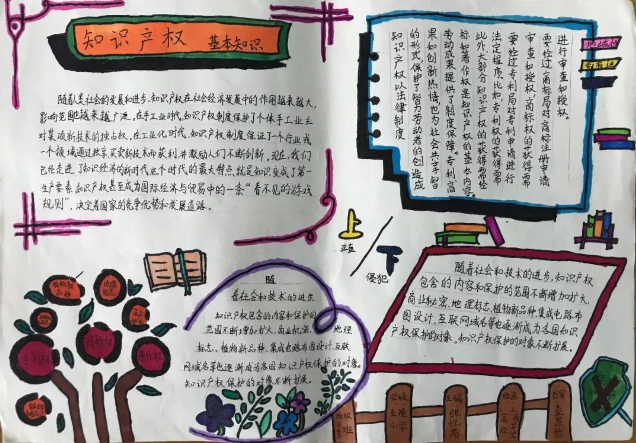 知识产权 基本知识
随着人类社会的发展和进步,知识产权在社会经济发展中的作用越来越大,
影响范围也越来越广泛,在手工业时代,知识产权制度保护了个体手工业主
对其攻新技术的独占权,在工业化时代,知识产权制度保证了一个行业或
一个领域通过独享买卖新技术而获利,并激励人们不断创新,现在,我们
已经走进了知识经济的新时代,这个时代的最大特点就是知识变成了第一
生产要素,知识产权甚至成为国际经济与贸易中的一条“看不见的游戏
规则”,决定着国家的竞争优势和发展道路。
知识产权以法律制度
的形式保护了智力劳动者的创造成
果和创新热情,也为社会共享智
劳动成果提供了制度保障,专利,商
标和著作权是知识产权的基本内容,
此外,大部分知识产权的获得需经
法定程序,比如专利权的获得需
要经过专利局对专利申请进行
审查和授权,商标权的获得需
要经过商标局对商标注册申请
进行审查和授权。
上
正直
下
侵犯
随
着社会和技术的进步,
知识产权包含的内容和保护的
范围不断增加扩大,商业秘密,地理
标志,植物新品种,集成电路布图设计,互联
网域名等也逐渐成为各国知识产权保护的对象。
知识产权保护的对象不断扩展。
随着社会和技术的进步,知识产权
包含的内容和保护的范围不断增加扩大,
商业秘密,地理标志,植物新品种,集成电路布
图设计,互联网域名等也逐渐成为各国知识
产权保护的对象,知识产权保护的对象不断扩展。
专利权
商标权
著作权